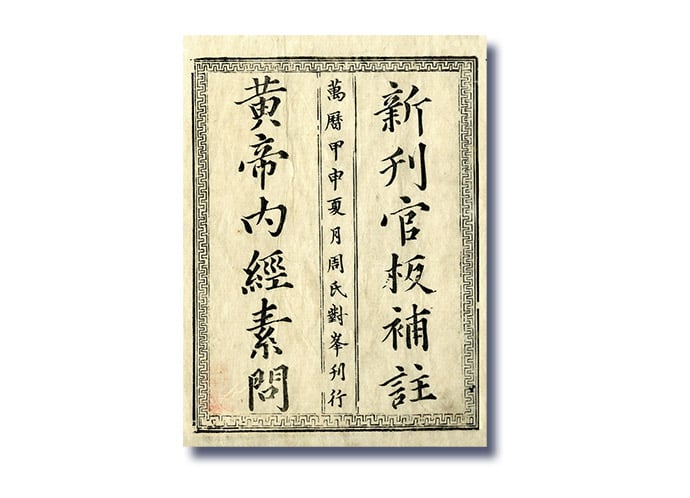 新刋官板補註
萬曆甲申夏月周氏對峯刋行
黄帝内經素問